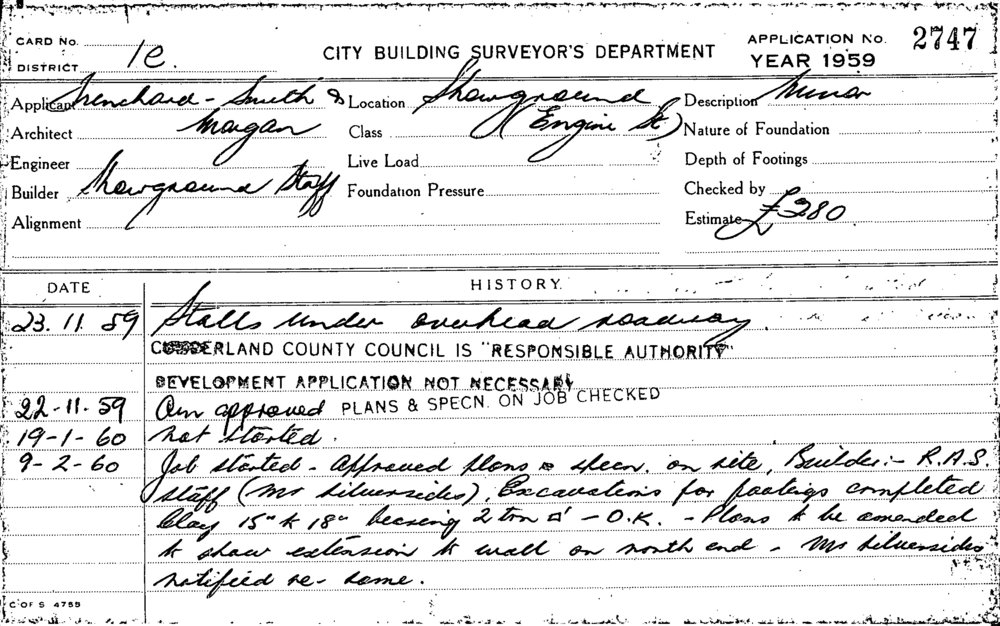 CARD No.
DISTRICT 1C.
CITY BUILDING SURVEYOR'S DEPARTMENT
APPLICATION No. 2747
YEAR 1959
Applicant Trenchard-Smith &
Location Showground
Description Minor
Architect Maigan
Class (Engine St)
Nature of Foundation
Engineer
Live Load
Depth of Footings
Builder Showground Staff
Foundation Pressure
Checked by
Alignment
Estimate £380
DATE HISTORY.
23.11.59 Stalls under overhead roadway.
CUMBERLAND COUNTY COUNCIL IS "RESPONSIBLE AUTHORITY"
DEVELOPMENT APPLICATION NOT NECESSARY
22-11-59 approved PLANS & SPECN. ON JOB CHECKED
19-1-60 Not started.
9-2-60 Job started - Approved plans & specn. on site, Builder:- R.A.S.
staff (Mr Silversides), Excavations for footings completed
Clay 15" to 18" bearing 2 ton □' - O.K. - Plans to be amended
to show extension to wall on north end - Mr Silversides
notified re- same.
C OF S 4755